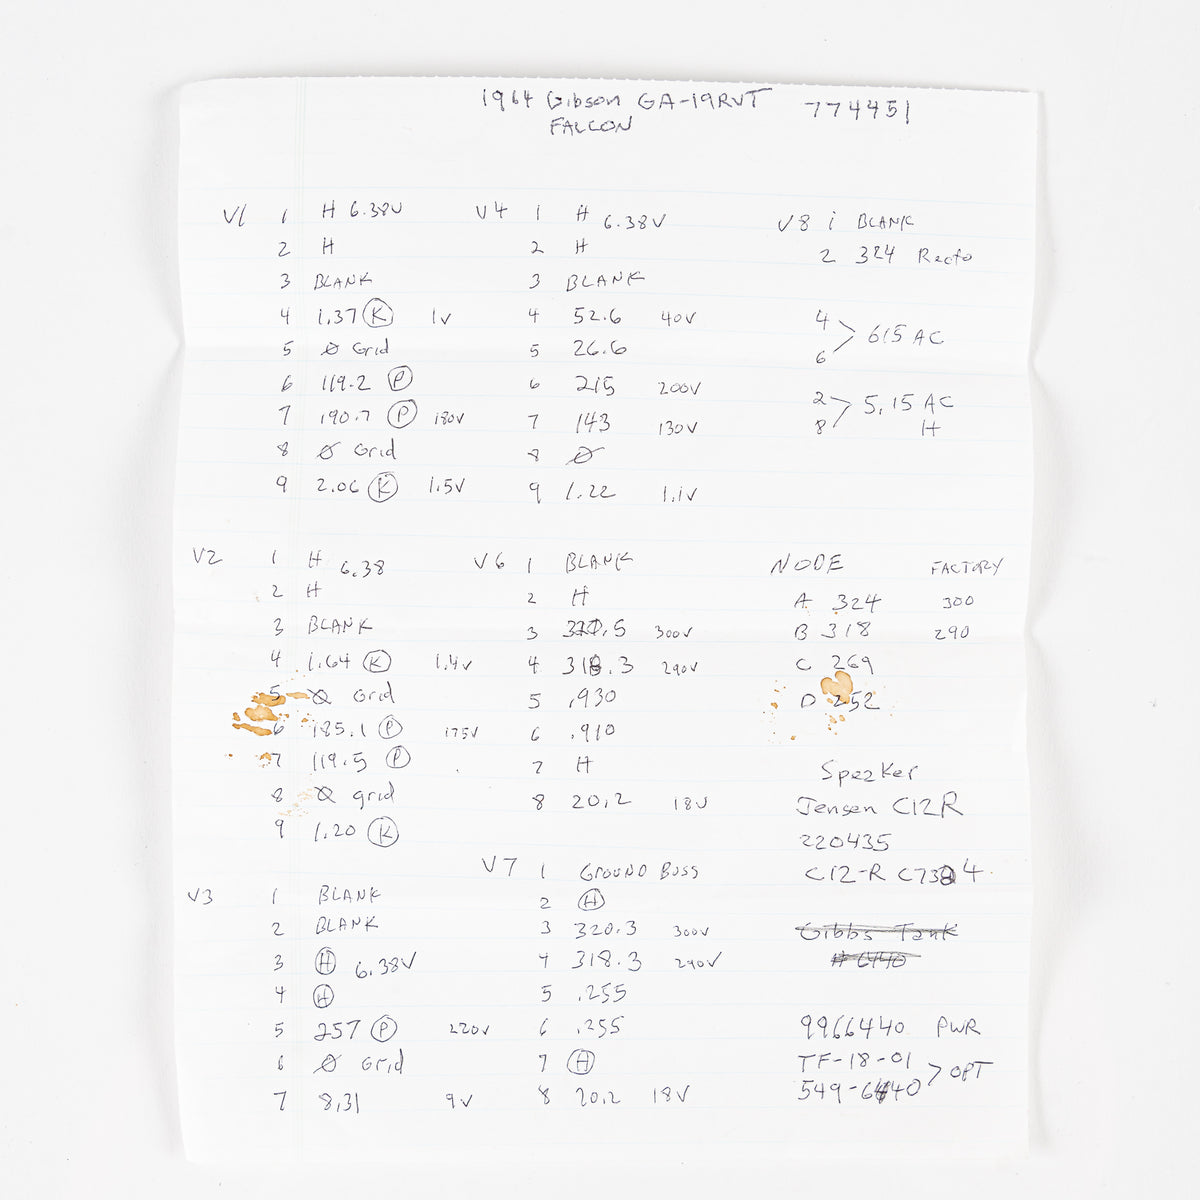 1964 Gibson GA-19RVT 774451
FALCON
V1 1 H 6.38V
2 H
3 BLANK
4 1.37 K 1v
5 Ø Grid
6 119.2 P
7 190.7 P 180V
8 Ø Grid
9 2.06 K 1.5V
V2 1 H 6.38
2 H
3 BLANK
4 1.64 K 1.4V
5 Ø Grid
6 185.1 P 175V
7 119.5 P
8 Ø grid
9 1.20 K
V3 1 BLANK
2 BLANK
3 H 6.38V
4 H
5 257 P 220V
6 Ø Grid
7 8.31 9V
V4 1 H 6.38V
2 H
3 BLANK
4 52.6 40V
5 26.6
6 215 200V
7 143 130V
8 Ø
9 1.22 1.1V
V6 1 BLANK
2 H
3 .5 300V
4 318.3 290V
5 .930
6 .910
7 H
8 20.2 18V
V7 1 GROUND BUSS
2 H
3 320.3 300V
4 318.3 290V
5 .255
6 .255
7 H
8 20.2 18V
V8 1 BLANK
2 324 Recto
4 > 615 AC
6
2 > 5.15 AC
8 H
NODE FACTORY
A 324 300
B 318 290
C 269
D 252
Speaker
Jensen C12R
220435
C12-R C7384
Gibbs Tank
# 6440
9966440 PWR
TF-18-01 > OPT
549-6440